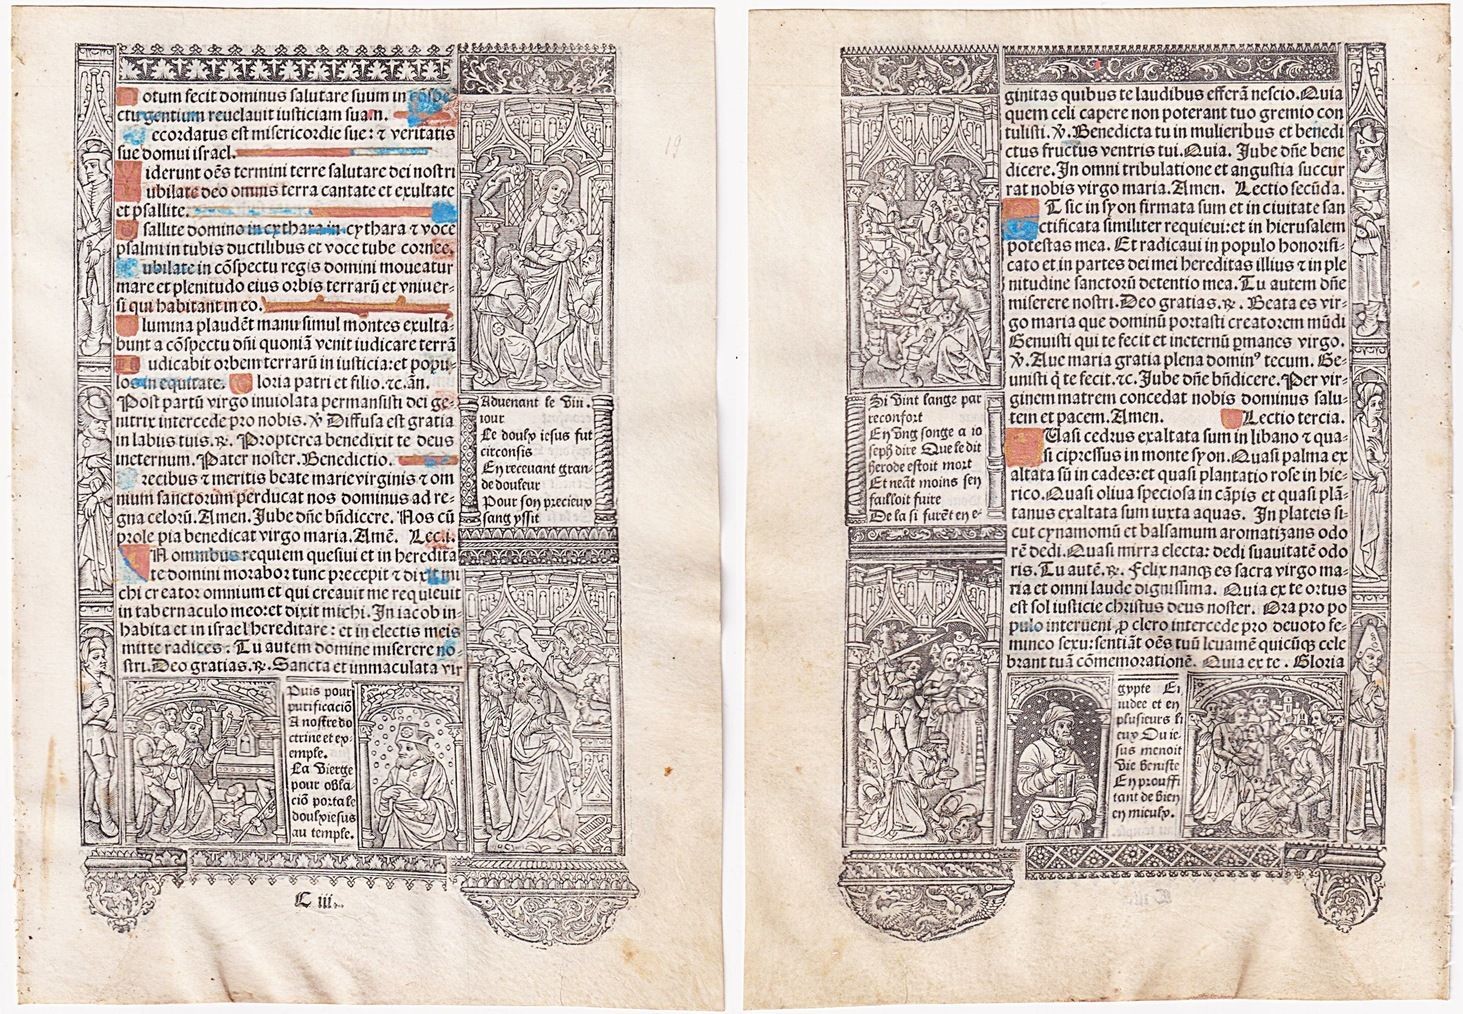 otum fecit dominus salutare suum in conspe
ctu gentium reuelauit iusticiam suam.
eccordatus est misericordie sue: ⁊ veritatis
sue domui israel.
iderunt oẽs termini terre salutare dei nostri
ubilate deo omnis terra cantate et exultate
et psallite.
sallite domino in cythara in cythara ⁊ voce
psalmi in tubis ductilibus et voce tube cornee.
ubilate in cõspectu regis domini moueatur
mare et plenitudo eius orbis terrarũ et vniuer-
si qui habitant in eo.
lumina plaudẽt manu simul montes exulta-
bunt a cõspectu dñi quoniã venit iudicare terrã
udicabit orbem terrarũ in iusticia: et popu
los in equitate. Gloria patri et filio. ⁊c. añ.
Post partũ virgo inuiolata permansisti dei ge-
nitrix intercede pro nobis. ℣ Diffusa est gratia
in labiis tuis. ℟. Propterea benedixit te deus
ineternum. Pater noster. Benedictio.
recibus ⁊ meritis beate marie virginis ⁊ om
nium sanctorum perducat nos dominus ad re-
gna celorũ. Amen. Jube dñe bñdicere. Nos cũ
prole pia benedicat virgo maria. Amẽ. Lec. i.
IN omnibus requiem quesiui et in heredita
te domini morabor tunc precepit ⁊ dixit mi
chi creator omnium et qui creauit me requieuit
in tabernaculo meo: et dixit michi. In iacob in-
habita et in israel hereditare: et in electis meis
mitte radices. Tu autem domine miserere no
stri. Deo gratias. ℟. Sancta et immaculata vir
Aduenant le viii.
iour
Le doulx iesus fut
circonsis
En receuant gran-
de douleur
Pour son precieux
sang yssit
Puis pour
purificaciõ
A nostre do
ctrine et ex
emple.
La vierge
pour obla
ciõ porta le
doulx iesus
au temple.
C iii.
19
ginitas quibus te laudibus efferã nescio. Quia
quem celi capere non poterant tuo gremio con
tulisti. ℣. Benedicta tu in mulieribus et benedi
ctus fructus ventris tui. Quia. Jube dñe bene
dicere. In omni tribulatione et angustia succur
rat nobis virgo maria. Amen. Lectio secũda.
ET sic in syon firmata sum et in ciuitate san
ctificata similiter requieui: et in hierusalem
potestas mea. Et radicaui in populo honorifi-
cato et in partes dei mei hereditas illius ⁊ in ple
nitudine sanctorũ detentio mea. Tu autem dñe
miserere nostri. Deo gratias. ℟. Beata es vir-
go maria que dominũ portasti creatorem mũdi
Genuisti qui te fecit et ineternũ ꝑmanes virgo.
℣. Aue maria gratia plena dominꝰ tecum. Ge-
nuisti q̃ te fecit. ⁊c. Jube dñe bñdicere. Per vir-
ginem matrem concedat nobis dominus salu-
tem et pacem. Amen. Lectio tercia.
QUasi cedrus exaltata sum in libano ⁊ qua-
si cipressus in monte syon. Quasi palma ex
altata sũ in cades: et quasi plantatio rose in hie-
rico. Quasi oliua speciosa in cãpis et quasi plã-
tanus exaltata sum iuxta aquas. In plateis si-
cut cynamomũ et balsamum aromatizans odo
rẽ dedi. Quasi mirra electa: dedi suauitatẽ odo
ris. Tu autẽ. ℟. Felix nanqꝫ es sacra virgo ma-
ria et omni laude dignissima. Quia ex te ortus
est sol iusticie christus deus noster. Ora pro po
pulo interueni ꝓ clero intercede pro deuoto fe-
mineo sexu: sentiãt oẽs tuũ leuamẽ quicũqꝫ cele
brant tuã cõmemorationẽ. Quia ex te. Gloria
Si vint lange par
reconfort
En vng songe a io
seph dire Que le dit
herode estoit mort
Et neãt moins sen
failloit fuire
De la si furẽt en e-
gypte Et
iudee et en
plusieurs li
eux Ou ie-
sus menoit
vie beniste
En prouffi
tant de bien
en mieulx.